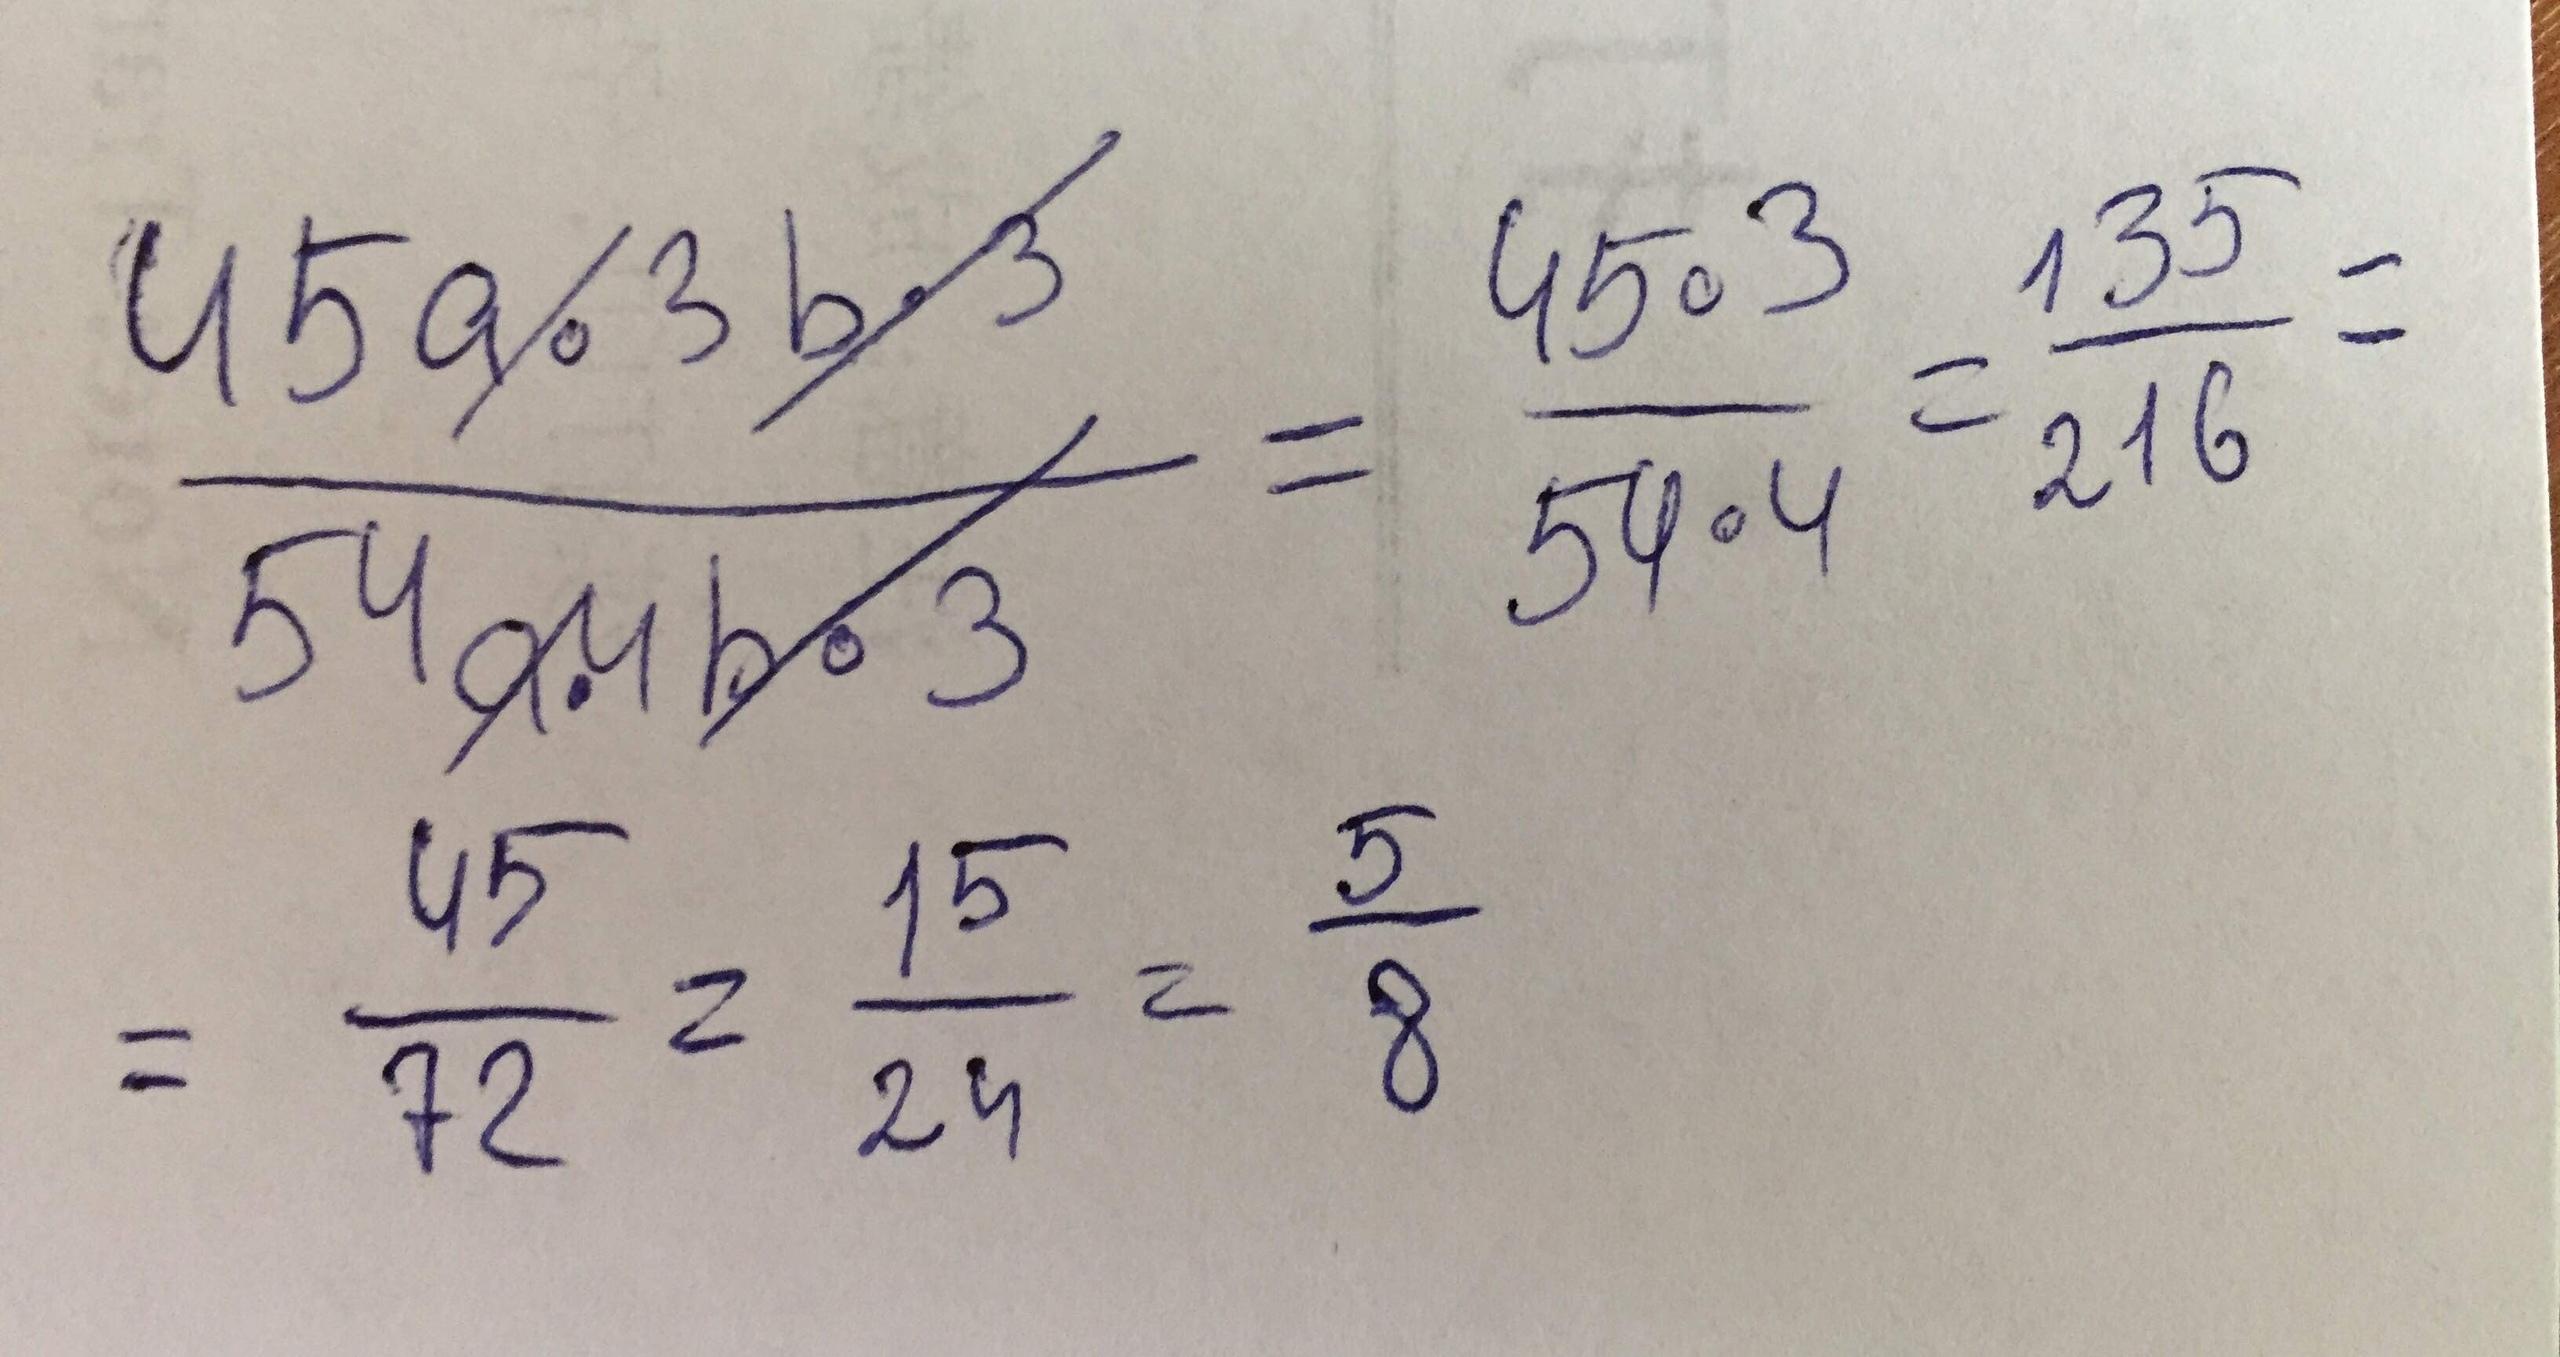 45a·3b·3 / 54a·4b·3 = 45·3 / 54·4 = 135/216 =
= 45/72 = 15/24 = 5/8